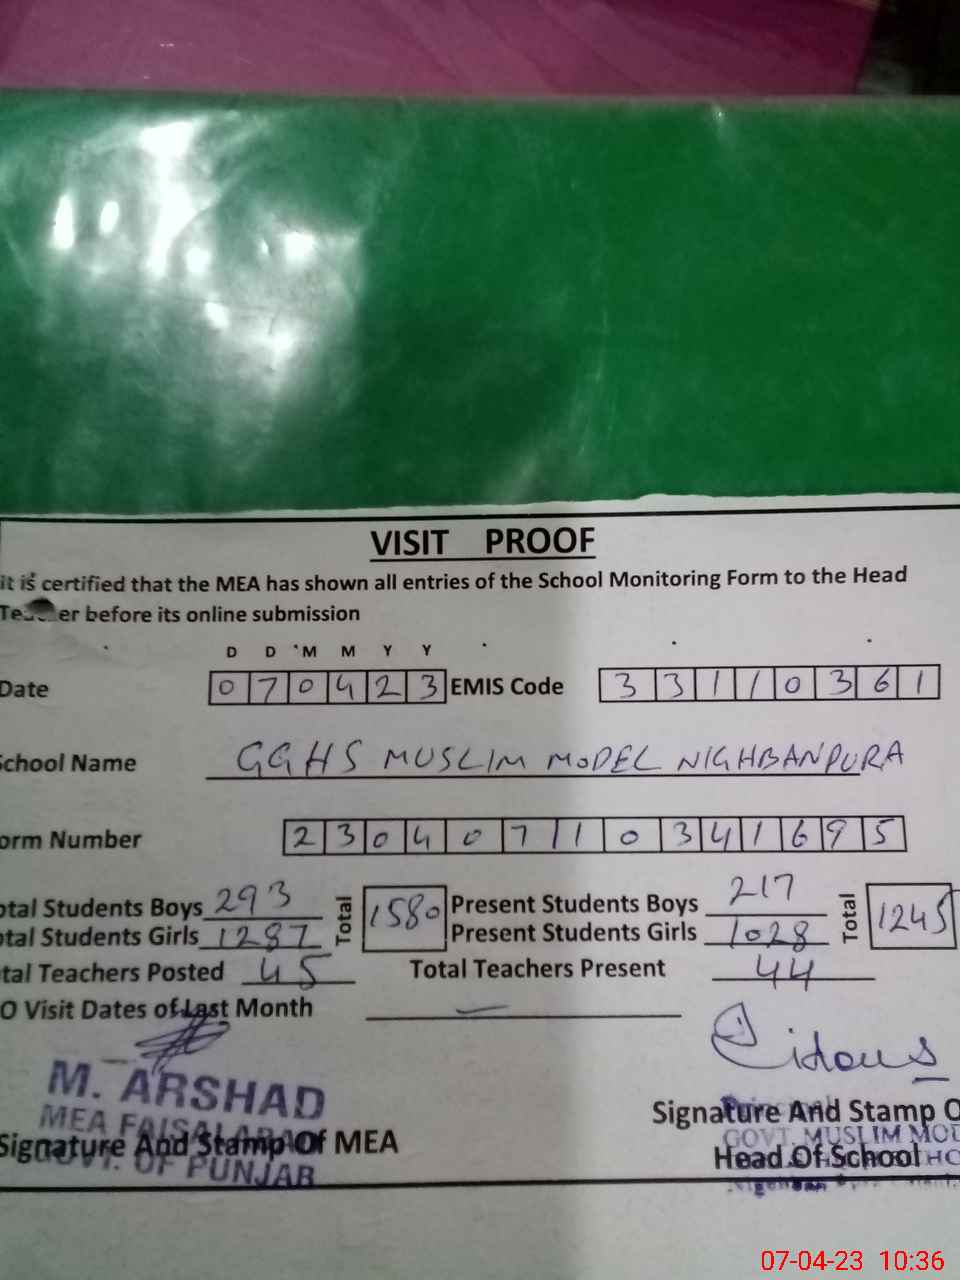 VISIT PROOF
it is certified that the MEA has shown all entries of the School Monitoring Form to the Head
er before its online submission
D D M M Y Y
Date 0 7 0 4 2 3 EMIS Code 3 3 1 1 0 3 6 1
School Name GGHS MUSLIM MODEL NIGHBANPURA
orm Number 2 3 0 4 0 7 1 0 3 4 1 6 9 5
otal Students Boys 293 Total 1580 Present Students Boys 217 Total 1245
otal Students Girls 1287 Present Students Girls 1028
tal Teachers Posted 45 Total Teachers Present 44
O Visit Dates of Last Month —
M. ARSHAD
MEA FAISALABAD
GOVT. OF PUNJAB
Signature And Stamp Of MEA
Signature And Stamp O
Head Of School
Principal
GOVT. MUSLIM MOD
07-04-23 10:36